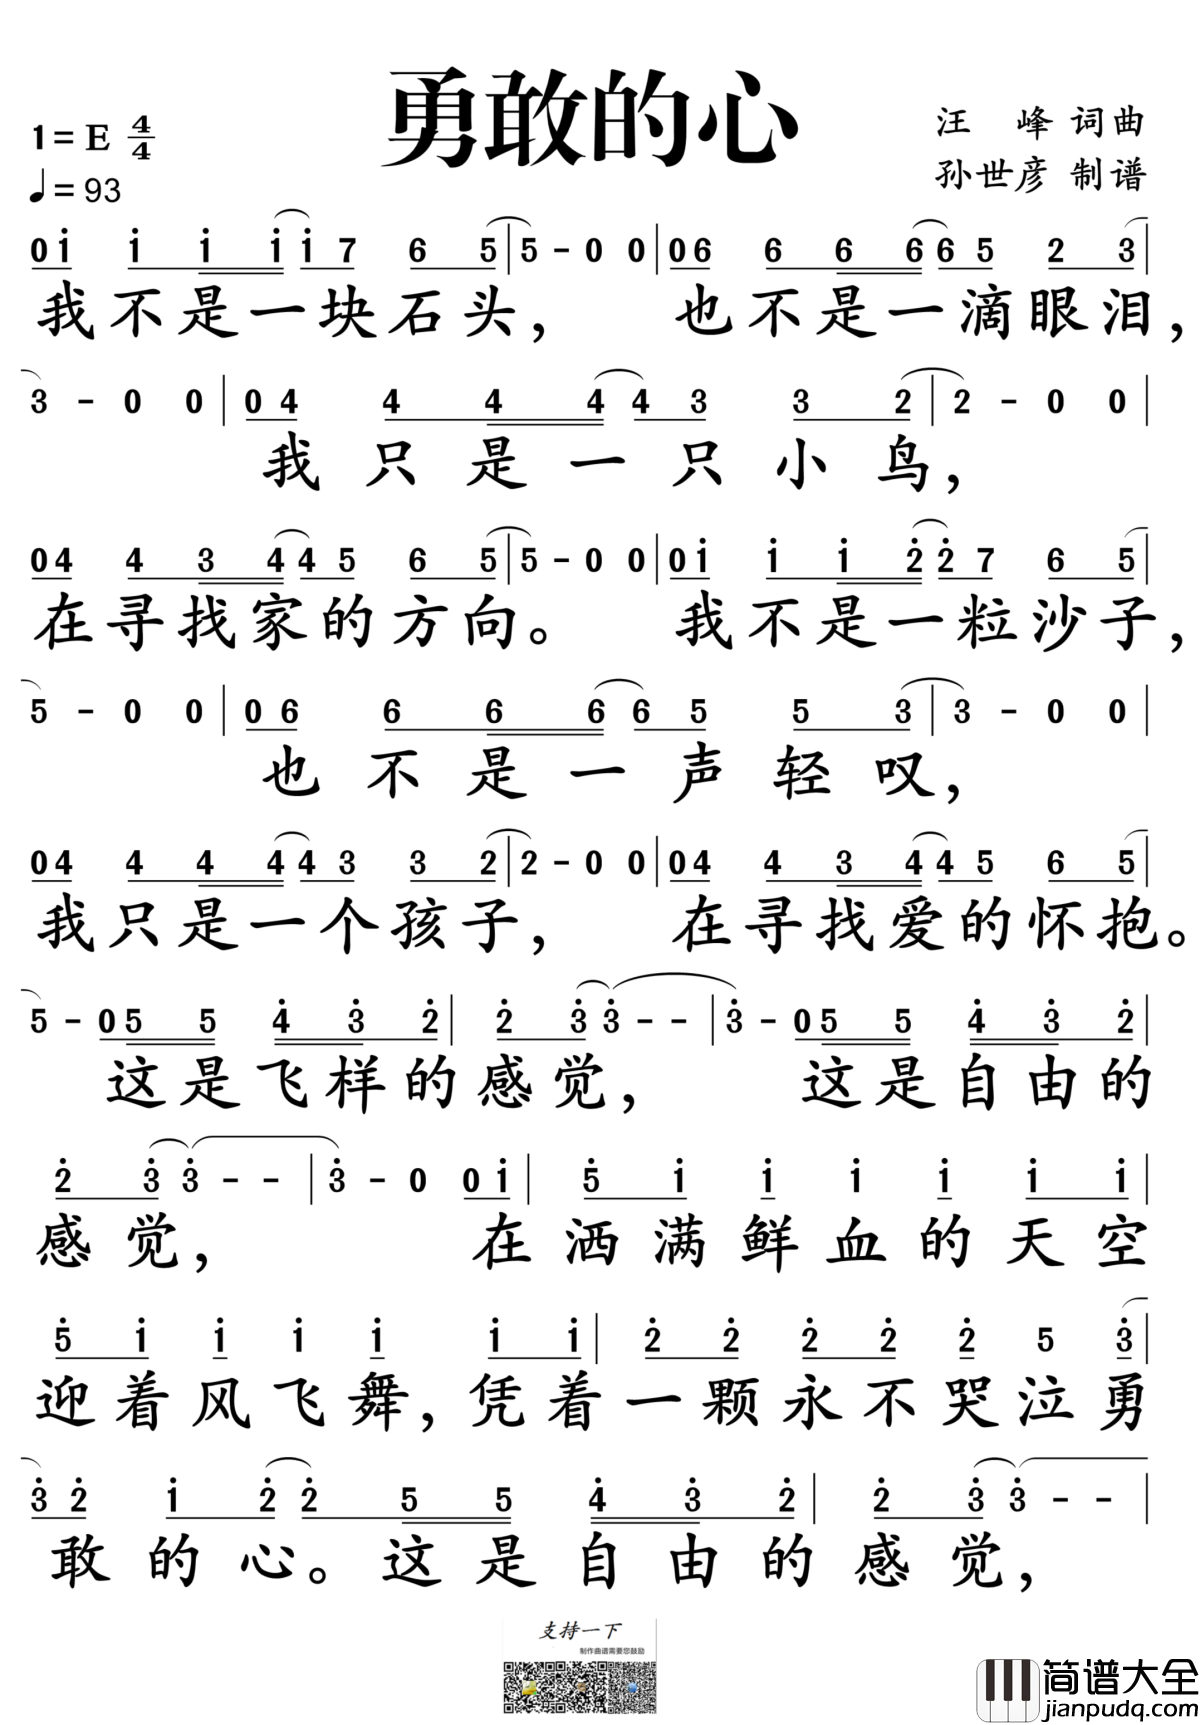 勇敢的心
1=E 4/4
♩=93
汪 峰 词曲
孙世彦 制谱
0i i i i i 7 6 5 | 5 - 0 0 | 06 6 6 6 6 5 2 3 |
我不是一块石头， 也不是一滴眼泪，
3 - 0 0 | 0 4 4 4 4 4 3 3 2 | 2 - 0 0 |
我只是一只小鸟，
04 4 3 4 4 5 6 5 | 5 - 0 0 | 0i i i 2̇ 2̇ 7 6 5 |
在寻找家的方向。 我不是一粒沙子，
5 - 0 0 | 0 6 6 6 6 6 5 5 3 | 3 - 0 0 |
也不是一声轻叹，
04 4 4 4 4 3 3 2 | 2 - 0 0 | 04 4 3 4 4 5 6 5 |
我只是一个孩子， 在寻找爱的怀抱。
5 - 0 5 5 4̇ 3̇ 2̇ | 2̇ 3̇ 3̇ - - | 3̇ - 0 5 5 4̇ 3̇ 2̇ |
这是飞样的感觉， 这是自由的
2̇ 3̇ 3̇ - - | 3̇ - 0 0 i | 5̇ i i i i i i |
感觉， 在洒满鲜血的天空
5̇ i i i i i i | 2̇ 2̇ 2̇ 2̇ 2̇ 5 3̇ |
迎着风飞舞，凭着一颗永不哭泣勇
3̇ 2̇ i 2̇ 2̇ 5 5 4̇ 3̇ 2̇ | 2̇ 3̇ 3̇ - - |
敢的心。这是自由的感觉，
支持一下
制作曲谱需要您鼓励
简谱大全
jianpudq.com